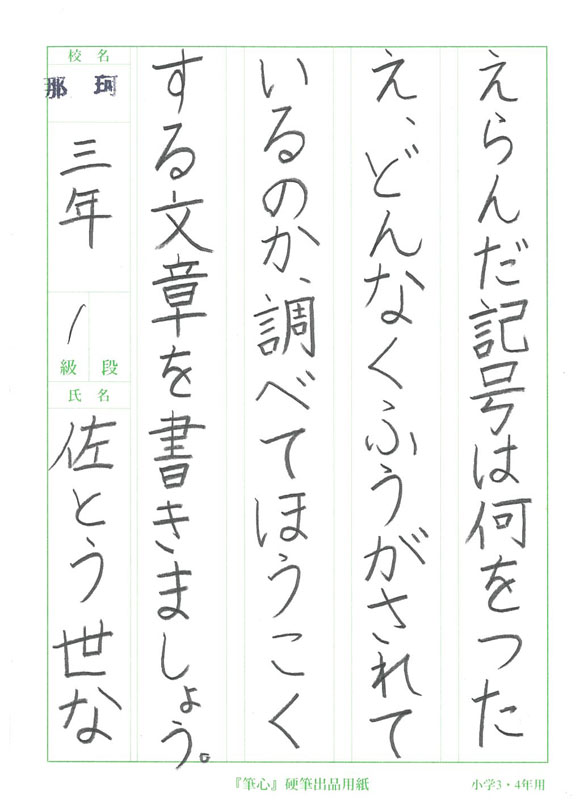 えらんだ記号は何をつた
え、どんなくふうがされて
いるのか、調べてほうこく
する文章を書きましょう。
校名
那珂
三年
級 段
氏名
佐とう世な
『筆心』硬筆出品用紙
小学3・4年用